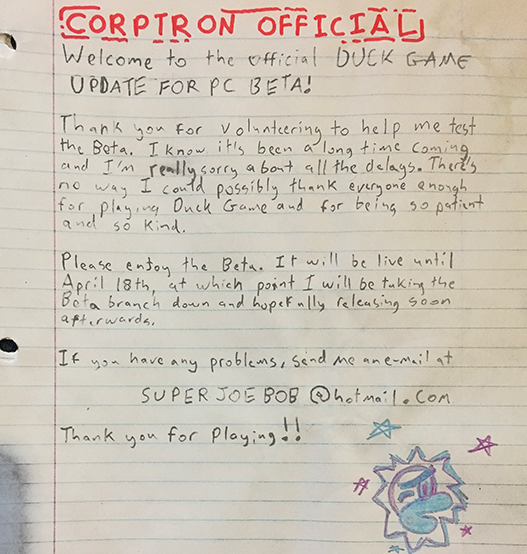 CORPTRON OFFICIAL
Welcome to the official DUCK GAME
UPDATE FOR PC BETA!
Thank you for volunteering to help me test
the Beta. I know it's been a long time coming
and I'm really sorry about all the delays. There's
no way I could possibly thank everyone enough
for playing Duck Game and for being so patient
and so kind.
Please enjoy the Beta. It will be live until
April 18th, at which point I will be taking the
Beta branch down and hopefully releasing soon
afterwards.
If you have any problems, send me an e-mail at
SUPERJOEBOB@hotmail.com
Thank you for Playing!!